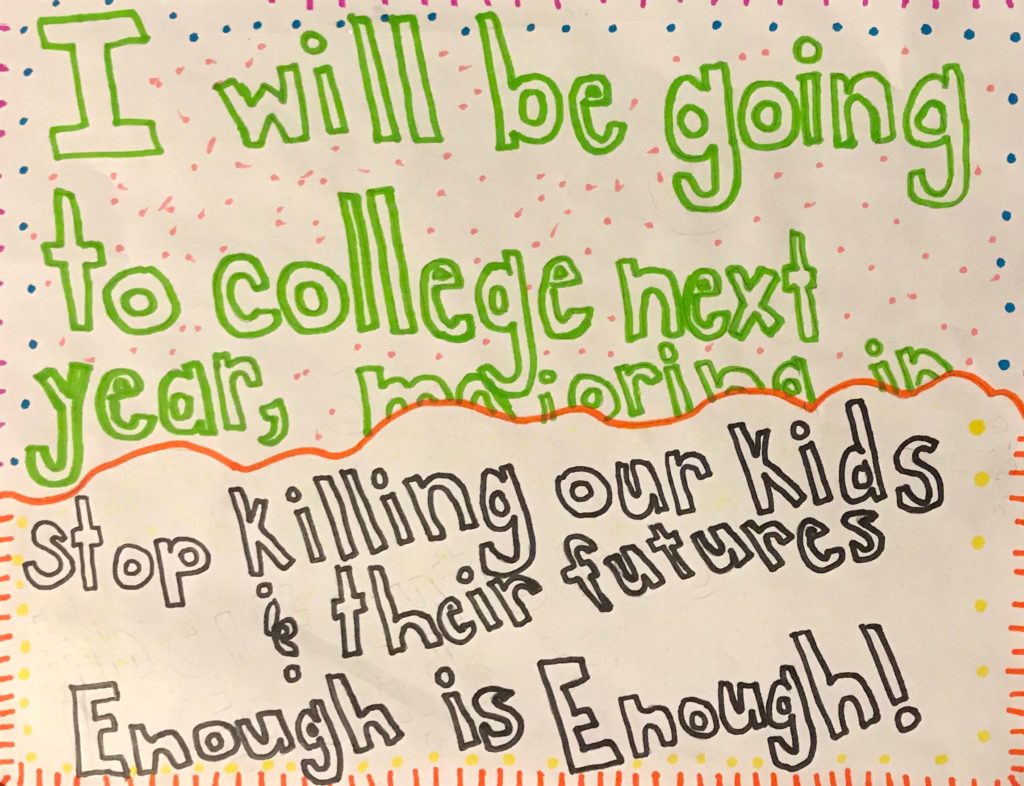 I will be going
to college next
year, majoring in
Stop Killing our Kids
& their futures
Enough is Enough!